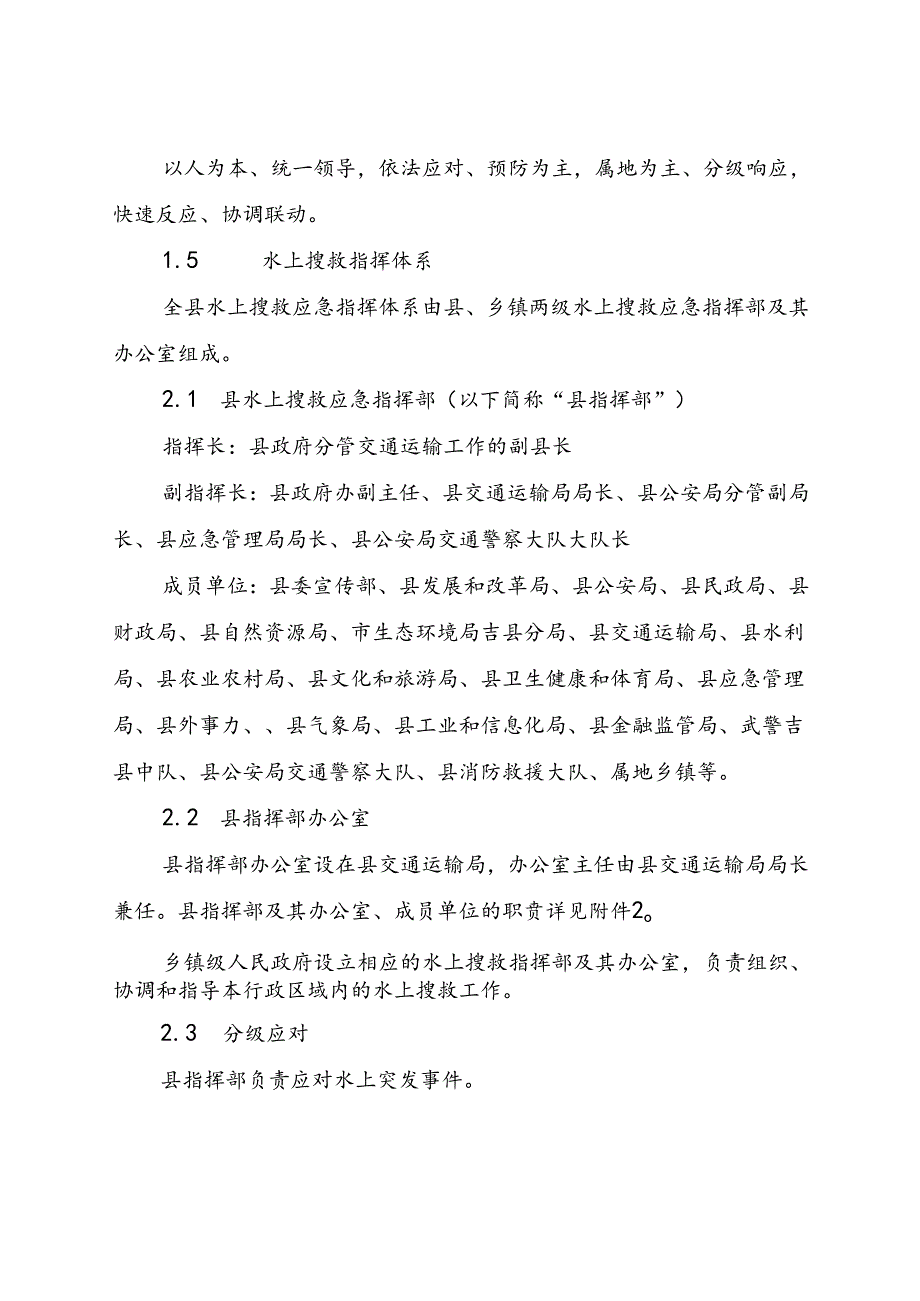 以人为本、统一领导，依法应对、预防为主，属地为主、分级响应，
快速反应、协调联动。
1.5 水上搜救指挥体系
全县水上搜救应急指挥体系由县、乡镇两级水上搜救应急指挥部及其
办公室组成。
2.1 县水上搜救应急指挥部（以下简称“县指挥部”）
指挥长：县政府分管交通运输工作的副县长
副指挥长：县政府办副主任、县交通运输局局长、县公安局分管副局
长、县应急管理局局长、县公安局交通警察大队大队长
成员单位：县委宣传部、县发展和改革局、县公安局、县民政局、县
财政局、县自然资源局、市生态环境局吉县分局、县交通运输局、县水利
局、县农业农村局、县文化和旅游局、县卫生健康和体育局、县应急管理
局、县外事力、、县气象局、县工业和信息化局、县金融监管局、武警吉
县中队、县公安局交通警察大队、县消防救援大队、属地乡镇等。
2.2 县指挥部办公室
县指挥部办公室设在县交通运输局，办公室主任由县交通运输局局长
兼任。县指挥部及其办公室、成员单位的职贲详见附件2。
乡镇级人民政府设立相应的水上搜救指挥部及其办公室，负责组织、
协调和指导本行政区域内的水上搜救工作。
2.3 分级应对
县指挥部负责应对水上突发事件。